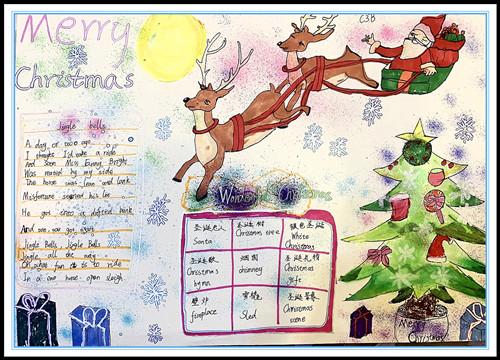 Merry
Christmas
C3B
Jingle bells
A day or two ago
I thought I'd take a ride
And soon Miss Fanny Bright
Was seated by my side
The horse was lean and lank
Misfortune seemed his lot
He got into a drifted bank
And we we got
Jingle Bells Jingle Bells
Jingle all the way
Oh what fun it is to ride
In a one horse open sleigh
Christmas
圣诞老人
Santa
圣诞树
银色圣诞
White
Christmas
圣诞歌
Christmas
hymn
烟囱
chimney
圣诞礼物
Christmas
gift
壁炉
fireplace
雪橇
Sled
圣诞
Christmas
Merry
Christmas